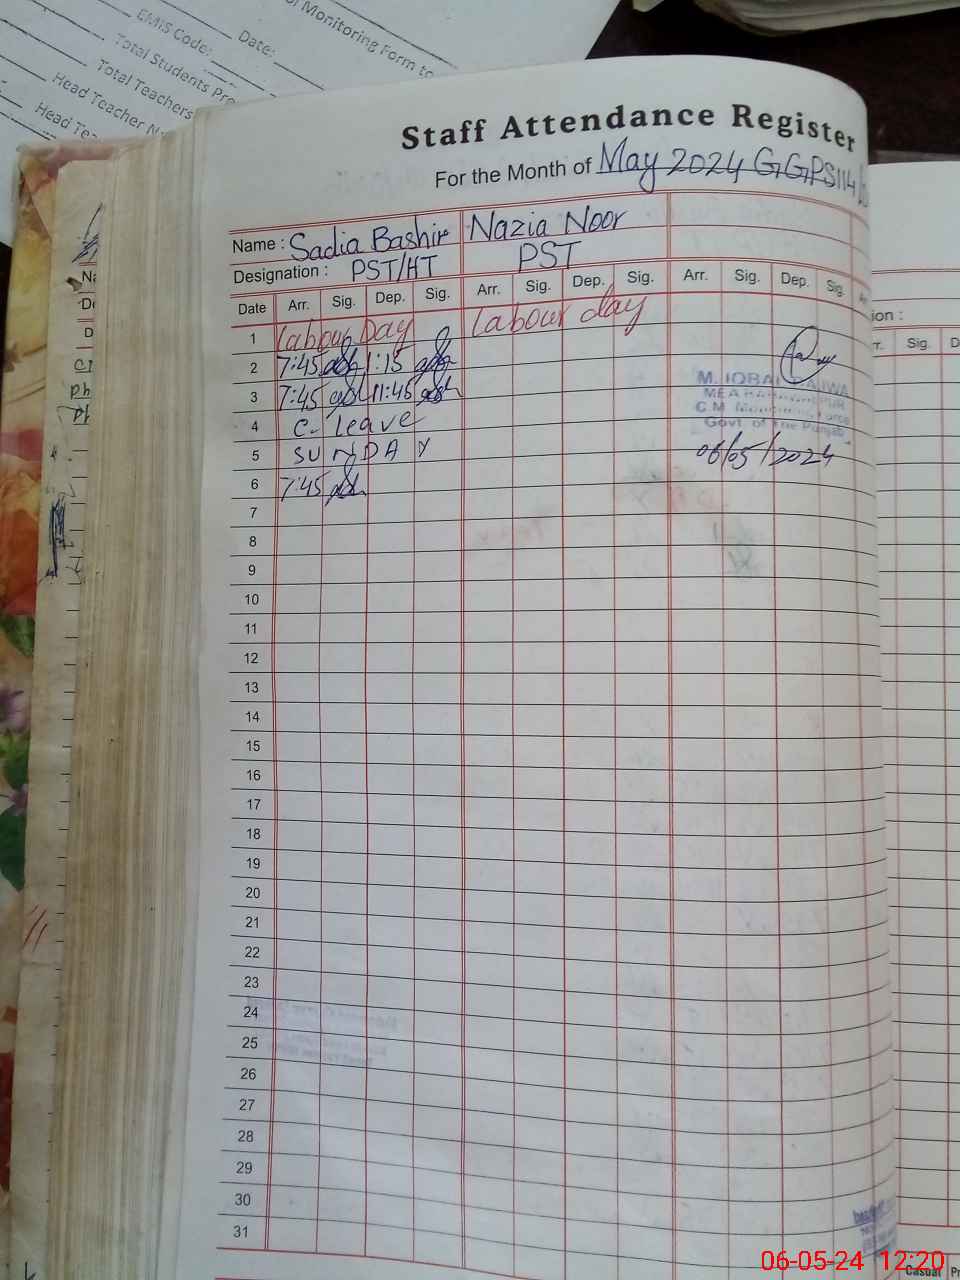 Monitoring Form to
EMIS Code: Date:
Total Students Pre
Total Teachers
Head Teacher N
Head Tea
Staff Attendance Register
For the Month of May 2024 GGPS 114
Name : Sadia Bashir Nazia Noor
Designation : PST/HT PST
Date Arr. Sig. Dep. Sig. Arr. Sig. Dep. Sig. Arr. Sig. Dep. Sig.
1 Labour Day Labour day
2 7:45 1:15
3 7:45 11:45
4 C- Leave
5 SUNDAY
6 7:45
M. IQBAL
C.M. Force
Govt. of The Punjab
06/05/2024
7
8
9
10
11
12
13
14
15
16
17
18
19
20
21
22
23
24
25
26
27
28
29
30
31
ion :
Sig.
Casual
06-05-24 12:20